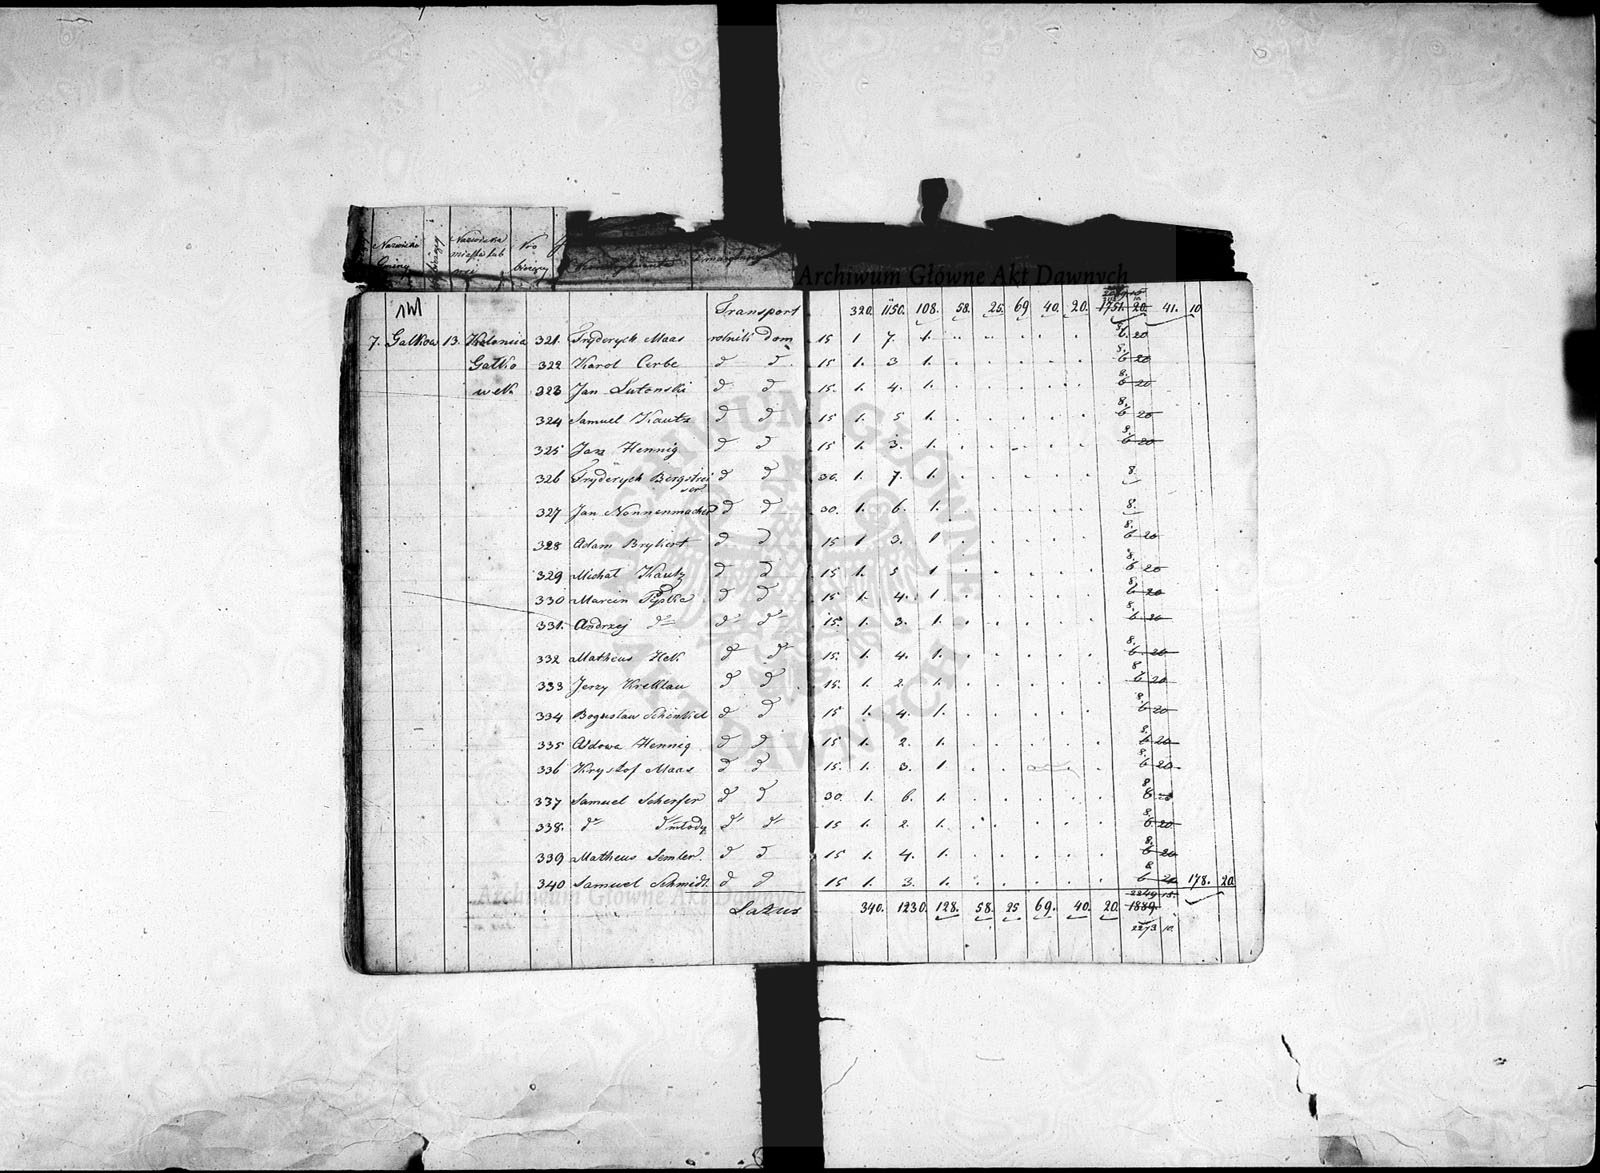 Nazwisko Gminy Nazwiska miasta lub wsi
Archiwum Główne Akt Dawnych
Transport 320. 1150. 108. 58. 25. 69 40. 20. 1751. 20. 41. 10
7. Galkow 13. Kolonia 321. Fryderych Maas rolnik dom 15 1 7. 1. 8. 6. 20
Galko 322 Karol Cerbe d d. 15 1. 3 1. 8. 6 20
wek 323 Jan Lutonski d d 15. 1. 4. 1. 8. 6 20
324 Samuel Kautz d d 15 1. 5 1. 8. 6 20
325 Jan Hennig d d 15 1. 3. 1. 8. 6 20
326 Fryderych Bergstrei d d 30. 1. 7. 1. 8.
ser
327 Jan Nonnenmacher d d 30. 1. 6. 1. 8.
328 Adam Brykert d d 15 1 3. 1 8. 6 20
329 Michał Kautz d d 15 1. 5 1 8. 6 20
330 Marcin d d 15 1. 4. 1 8. 6 20
331. Andrzej do do do 15. 1. 3. 1. 8. 6 20
332 Matheus Hek do do 15. 1. 4. 1. 8. 6. 20
333 Jerzy Krekllau d d 15. 1. 2. 1. 8 6 20
334 Bogusław Schönkel d d 15 1. 4. 1. 8. 6 20
335 Wdowa Hennig d d 15 1. 2. 1. 8. 6 20
336 Krystof Maas d d 15. 1. 3. 1 8. 6 20
337 Samuel Scherfer d d 30. 1. 6. 1. 8
338. do do młody do do 15 1. 2. 1. 8. 6. 20
339 Matheus Semler. d d 15 1. 4. 1. 8. 6 20
340 Samuel Schmidt. d d 15 1. 3. 1. 8 6 20 178. 20
2249 15.
Latus 340. 1230. 128. 58. 25 69. 40. 20. 1889.
2273 10.
Archiwum Główne Akt Dawnych
ARCHIWUM GŁÓWNE AKT DAWNYCH